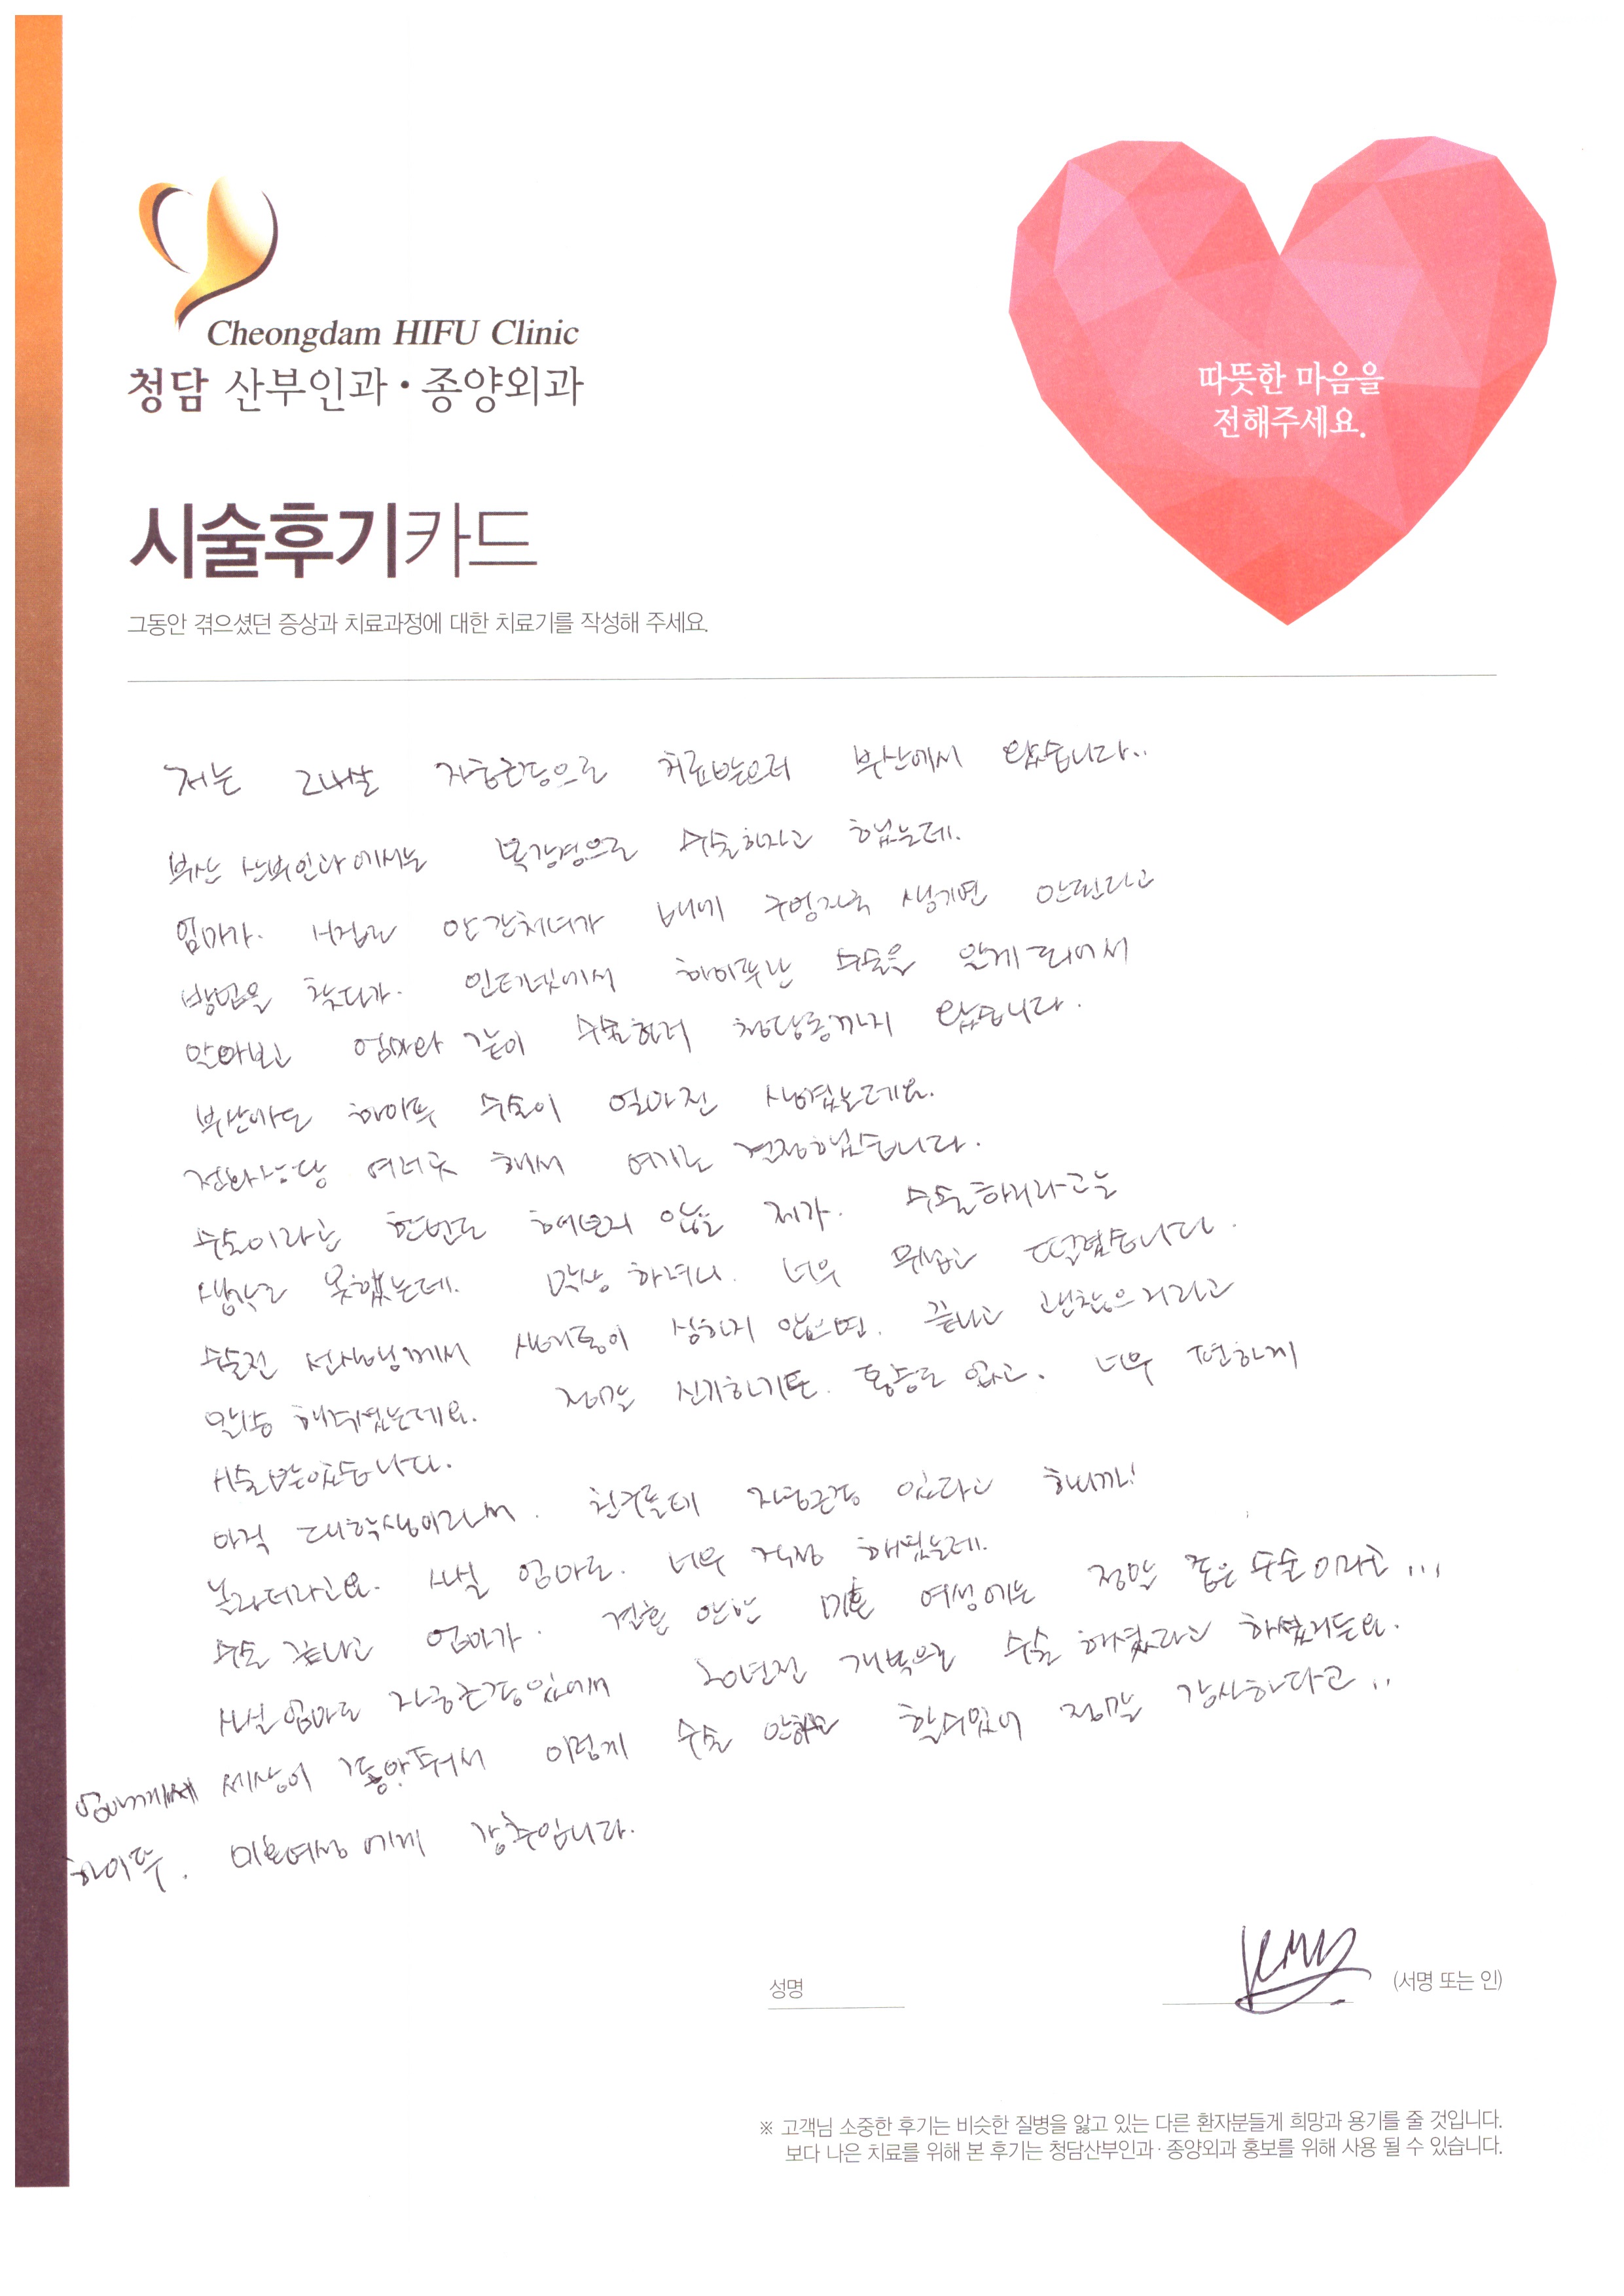 Cheongdam HIFU Clinic
청담 산부인과 • 종양외과
따뜻한 마음을
전해주세요.
시술후기카드
그동안 겪으셨던 증상과 치료과정에 대한 치료기를 작성해 주세요.
저는 24살 자궁근종으로 치료받으러 부산에서 왔습니다..
부산 산부인과에서는 복강경으로 수술하자고 했는데.
엄마가. 시집도 안간처녀가 배에 구멍자국 생기면 안된다고
방법을 찾다가. 인터넷에서 하이푸란 수술을 알게 되어서
알아보고 엄마와 같이 수술하러 청담동까지 왔습니다.
부산에도 하이푸 수술이 얼마전 생겼는데요.
전화상담 여러곳 해서 여기로 결정했습니다.
수술이라곤 한번도 해보지 않은 제가. 수술하리라고는
생각도 못했는데. 막상 하려니. 너무 무섭고 떨렸습니다.
수술전 선생님께서 생리통이 심하지 않으면. 끝나고 괜찮으리라고
말씀 해주셨는데요. 정말 신기하기도. 통증도 없고. 너무 편하게
시술받았습니다.
아직 대학생이라서. 친구들테 자궁근종 있다고 하니까!
놀라더라고요. 사실 엄마도. 너무 걱정 하셨는데.
수술 끝나고 엄마가. 결혼 안한 미혼 여성에는 정말 좋은 수술이라고...
사실 엄마도 자궁근종있어서 20년전 개복으로 수술 하셨다고 하셨거든요.
엄마께서 세상이 좋아져서 이렇게 수술 안하고 할수있어 정말 감사하다고..
하이푸. 미혼여성에게 강추입니다.
성명
(서명 또는 인)
※ 고객님 소중한 후기는 비슷한 질병을 앓고 있는 다른 환자분들께 희망과 용기를 줄 것입니다.
보다 나은 치료를 위해 본 후기는 청담산부인과 · 종양외과 홍보를 위해 사용 될 수 있습니다.